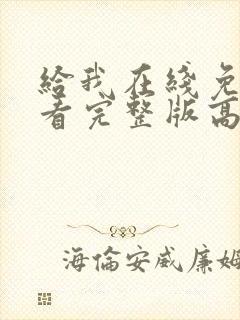 给我在线免
看完整版高
海倫安威廉姆